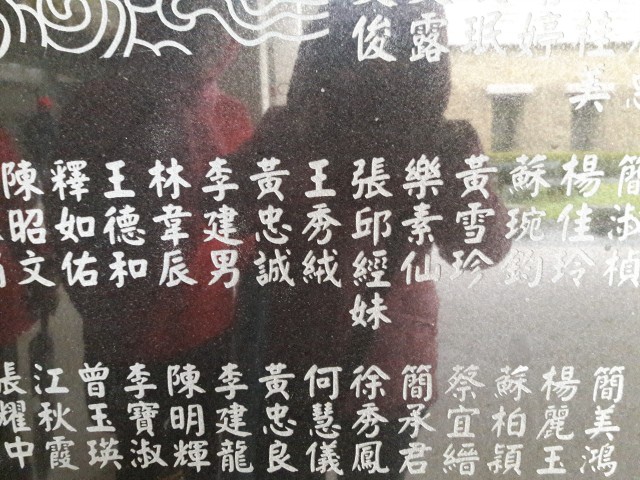 桂英
婷
珉
露
俊
簡淑楨
楊佳玲
蘇琬鈞
黃雪珍
樂素仙
張邱經妹
王秀絨
黃忠誠
李建男
林韋辰
王德和
釋如佑
陳昭文
簡美鴻
楊麗玉
蘇柏穎
蔡宜縉
簡承君
徐秀鳳
何慧儀
黃忠良
李建龍
陳明輝
李寶淑
曾玉瑛
江秋霞
張耀中